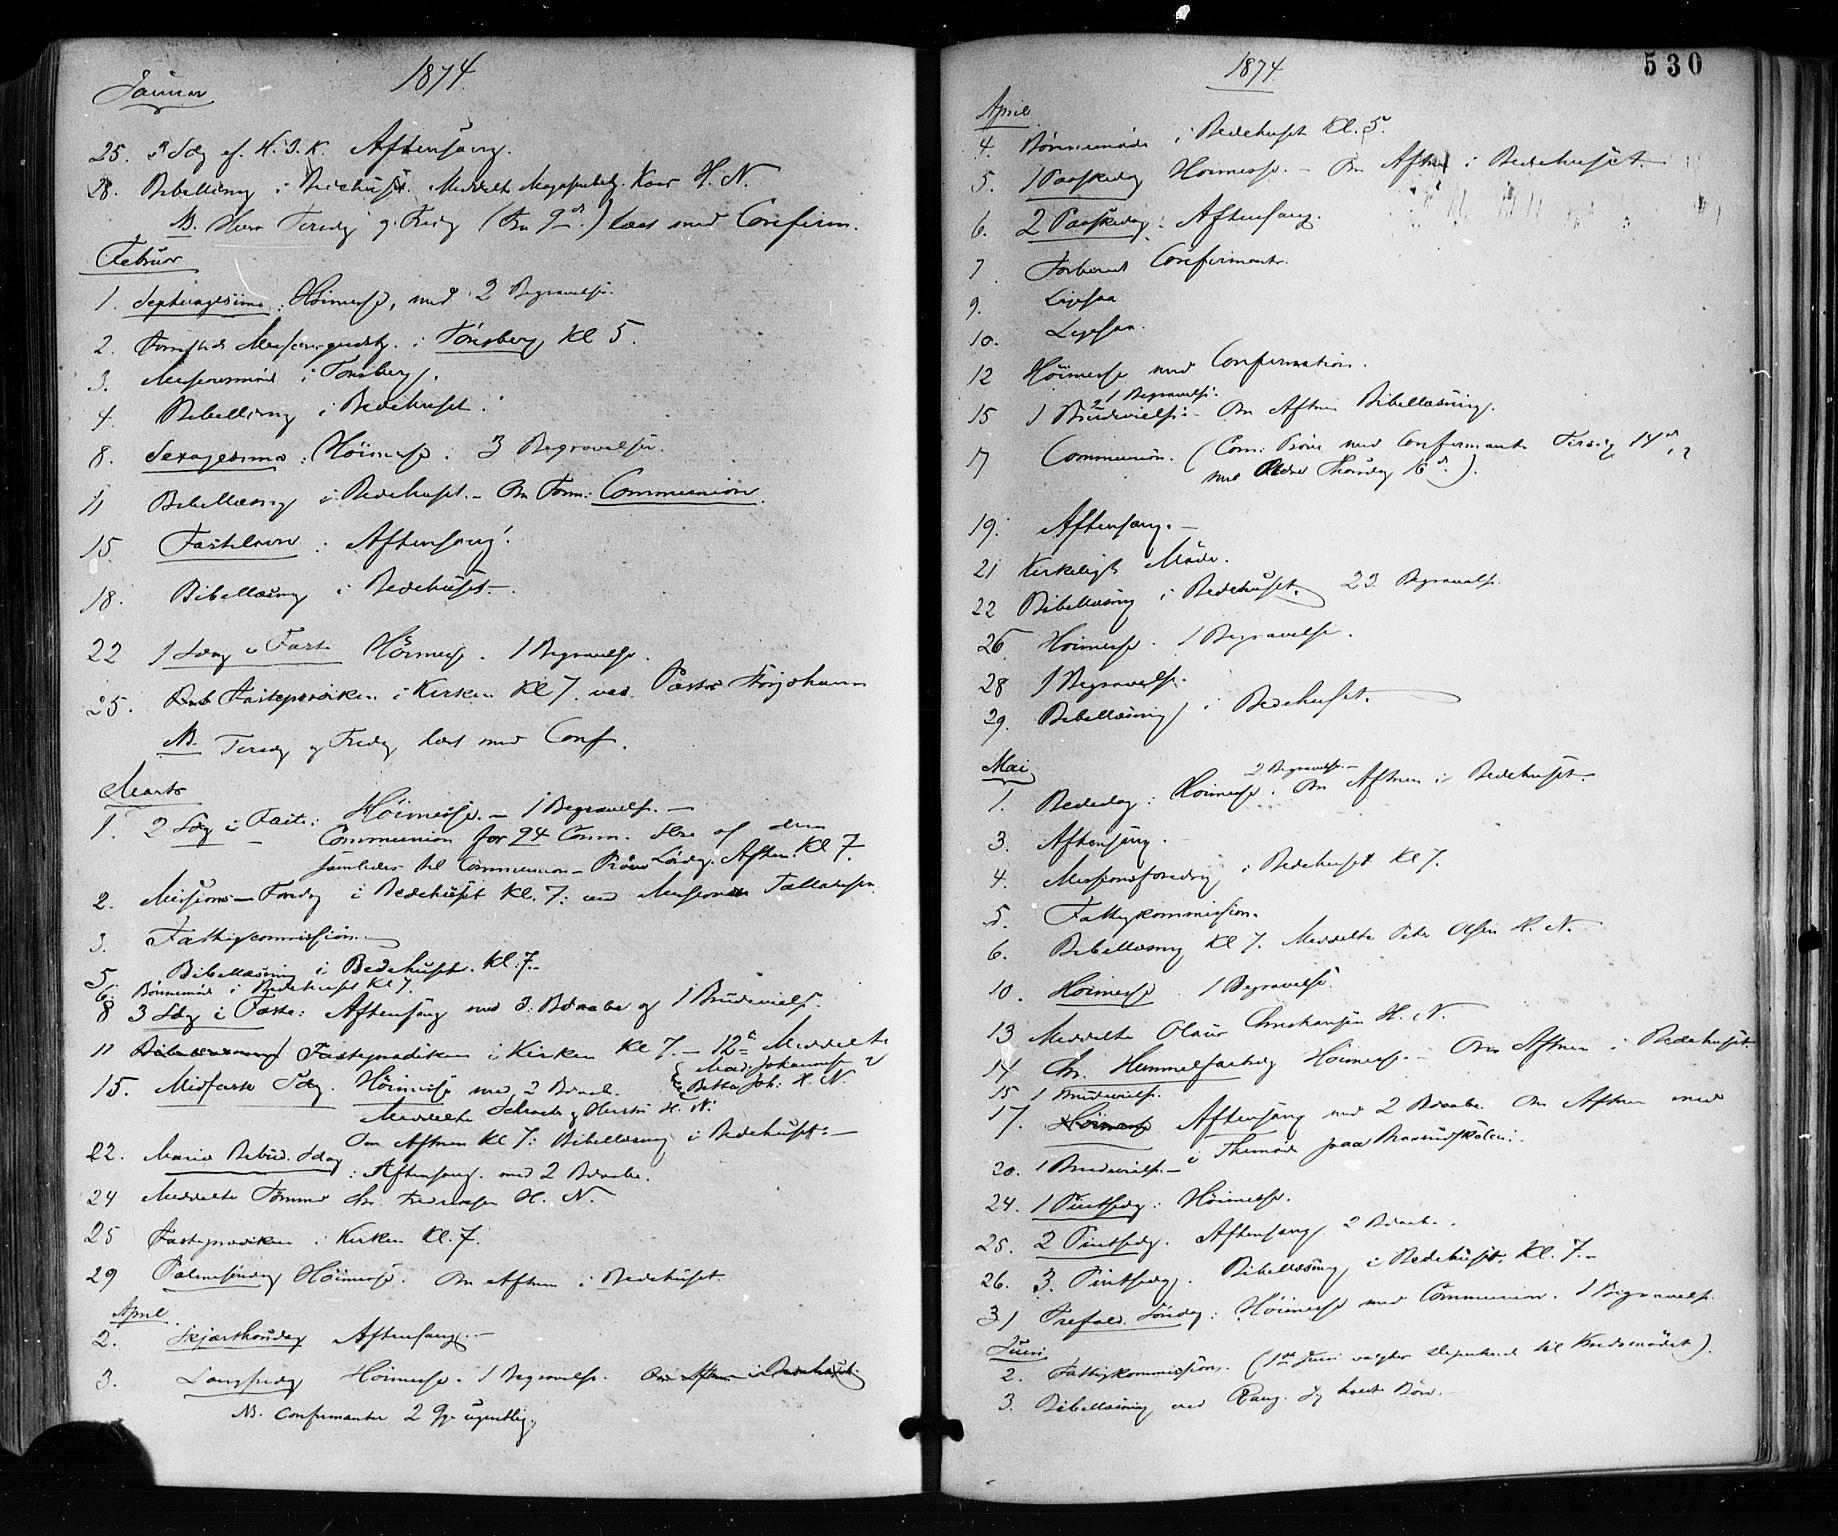 1874.
Januar
25. 3 Sdg ef. H.3.K. Aftensang.
28. Bibellæsng i Bedehuset. Meddelte H. N.
NB. Hver Tirsdg og Fredg (fra 9de) læst med Confirm.
Februar
1. Septuagesima: Höimesse, med 2 Begravelser.
2. i Tönsberg Kl 5.
3. Missionsmöde i Tönsberg.
4. Bibellæsng i Bedehuset.
8. Sexagesima: Höimesse. 3 Begravelser.
11 Bibellæsng i Bedehuset. – Om Form: Communion.
15. Fastelavn: Aftensang.
18. Bibellæsng i Bedehuset.
22 1 Sdag i Faste Höimesse. 1 Begravelse.
25. Fasteprædiken i Kirken Kl 7. ved Pastor
NB. Tirsdg og Fredg læst med Conf.
Marts
1. 2 Sdg i Faste: Höimesse. – 1 Begravelse. –
Communion for 94 Comm. Flere af dem
samledes til Communion – Bön Lördag Aften. Kl 7.
2. Missions-Foredrag i Bedehuset Kl. 7: ved Missionær
3. Fattigcommission.
5 Bibellæsning i Bedehuset. Kl: 7.
6 Bönnemöde i Bedehuset Kl 7.
8 3 Sdg i Faste: Aftensang med 3 Bdaabe og 1 Brudevielse.
11 Bibellæsning Fasteprædiken i Kirken Kl 7. – 12te Meddelte
15. Midfaste Sdg. Höimesse med 2 Bdaab. Joh: H. N.
Meddelte H. N.
Om Aftnen Kl 7: Bibellæsng i Bedehuset: –
22. Mariæ Bebud. Sdag: Aftensang. med 2 Bdaabe.
24 Meddelte H. N.
25 Fasteprædiken i Kirken Kl. 7.
29 Palmesöndag Höimesse. Om Aftnen i Bedehuset.
April
2. Skjærthorsdag Aftensang. –
3. Langfredag Höimesse. 1 Begravelse. Om Aftnen i Bedehuset.
NB. Confirmanter 2 Gge ugentlig.
1874
530
April
4. Bönnemöde i Bedehuset Kl. 5.
5. 1 Paaskedag Höimesse. – Om Aftnen i Bedehuset.
6. 2 Paaskedag: Aftensang.
7 Forberedt Confirmanter.
9. Ligesaa
10. Ligesaa.
12 Höimesse med Confirmation.
1 Begravelse.
15 1 Brudevielse – Om Aftnen Bibellæsning.
17 Communion. (Com: Bön med Confirmanter Tirsdg 14de,
med Ældre Thorsdag 16de).
19. Aftensang. –
21 Kirkeligt Möde.
22 Bibellæsning i Bedehuset. 23. Begravelse.
26. Höimesse. 1 Begravelse.
28 1 Begravelse.
29. Bibellæsning i Bedehuset.
Mai
2 Begravelser –
1. Bededag: Höimesse. Om Aftnen i Bedehuset.
3. Aftensang.
4. Missionsforedrag i Bedehuset Kl 7.
5. Fattigkommission.
6. Bibellæsning Kl 7. Meddelte Peter Olsen H. N.
10. Höimesse. 1 Begravelse.
13 Meddelte Olaus Christiansen H. N.
14. Chr. Himmelfartsdg Höimesse. – Om Aftnen i Bedehuset.
15 1 Brudevielse.
17. Höimesse Aftensang med 2 Bdaabe. Om Aftnen med
20. 1 Brudevielse. –
24. 1 Pintsedg: Höimesse.
25. 2 Pintsedg. Aftensang. 2 Bdaabe.
26. 3. Pintsedg. Bibellæsning i Bedehuset. Kl. 7. –
31 Trefold. Söndag: Höimesse med Communion. 1 Begravelse.
Juni
2. Fattigkommission. (1ste Juni valgtes deputerede til Kredsmödet).
3. Bibellæsning ved